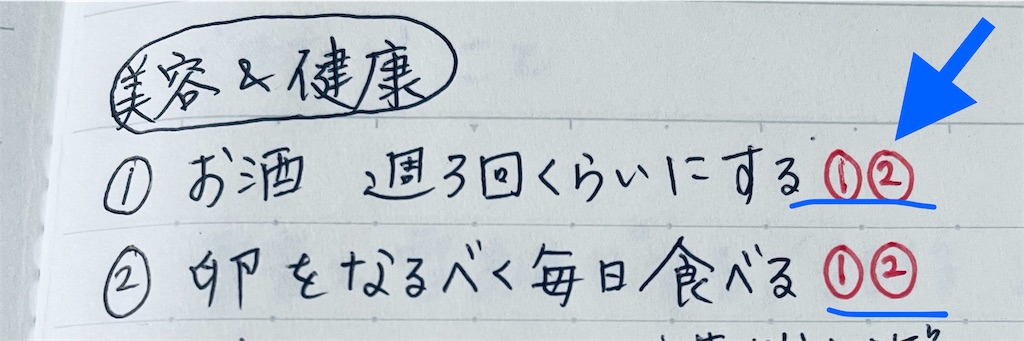 美容&健康
① お酒 週3回くらいにする ①②
② 卵をなるべく毎日食べる ①②